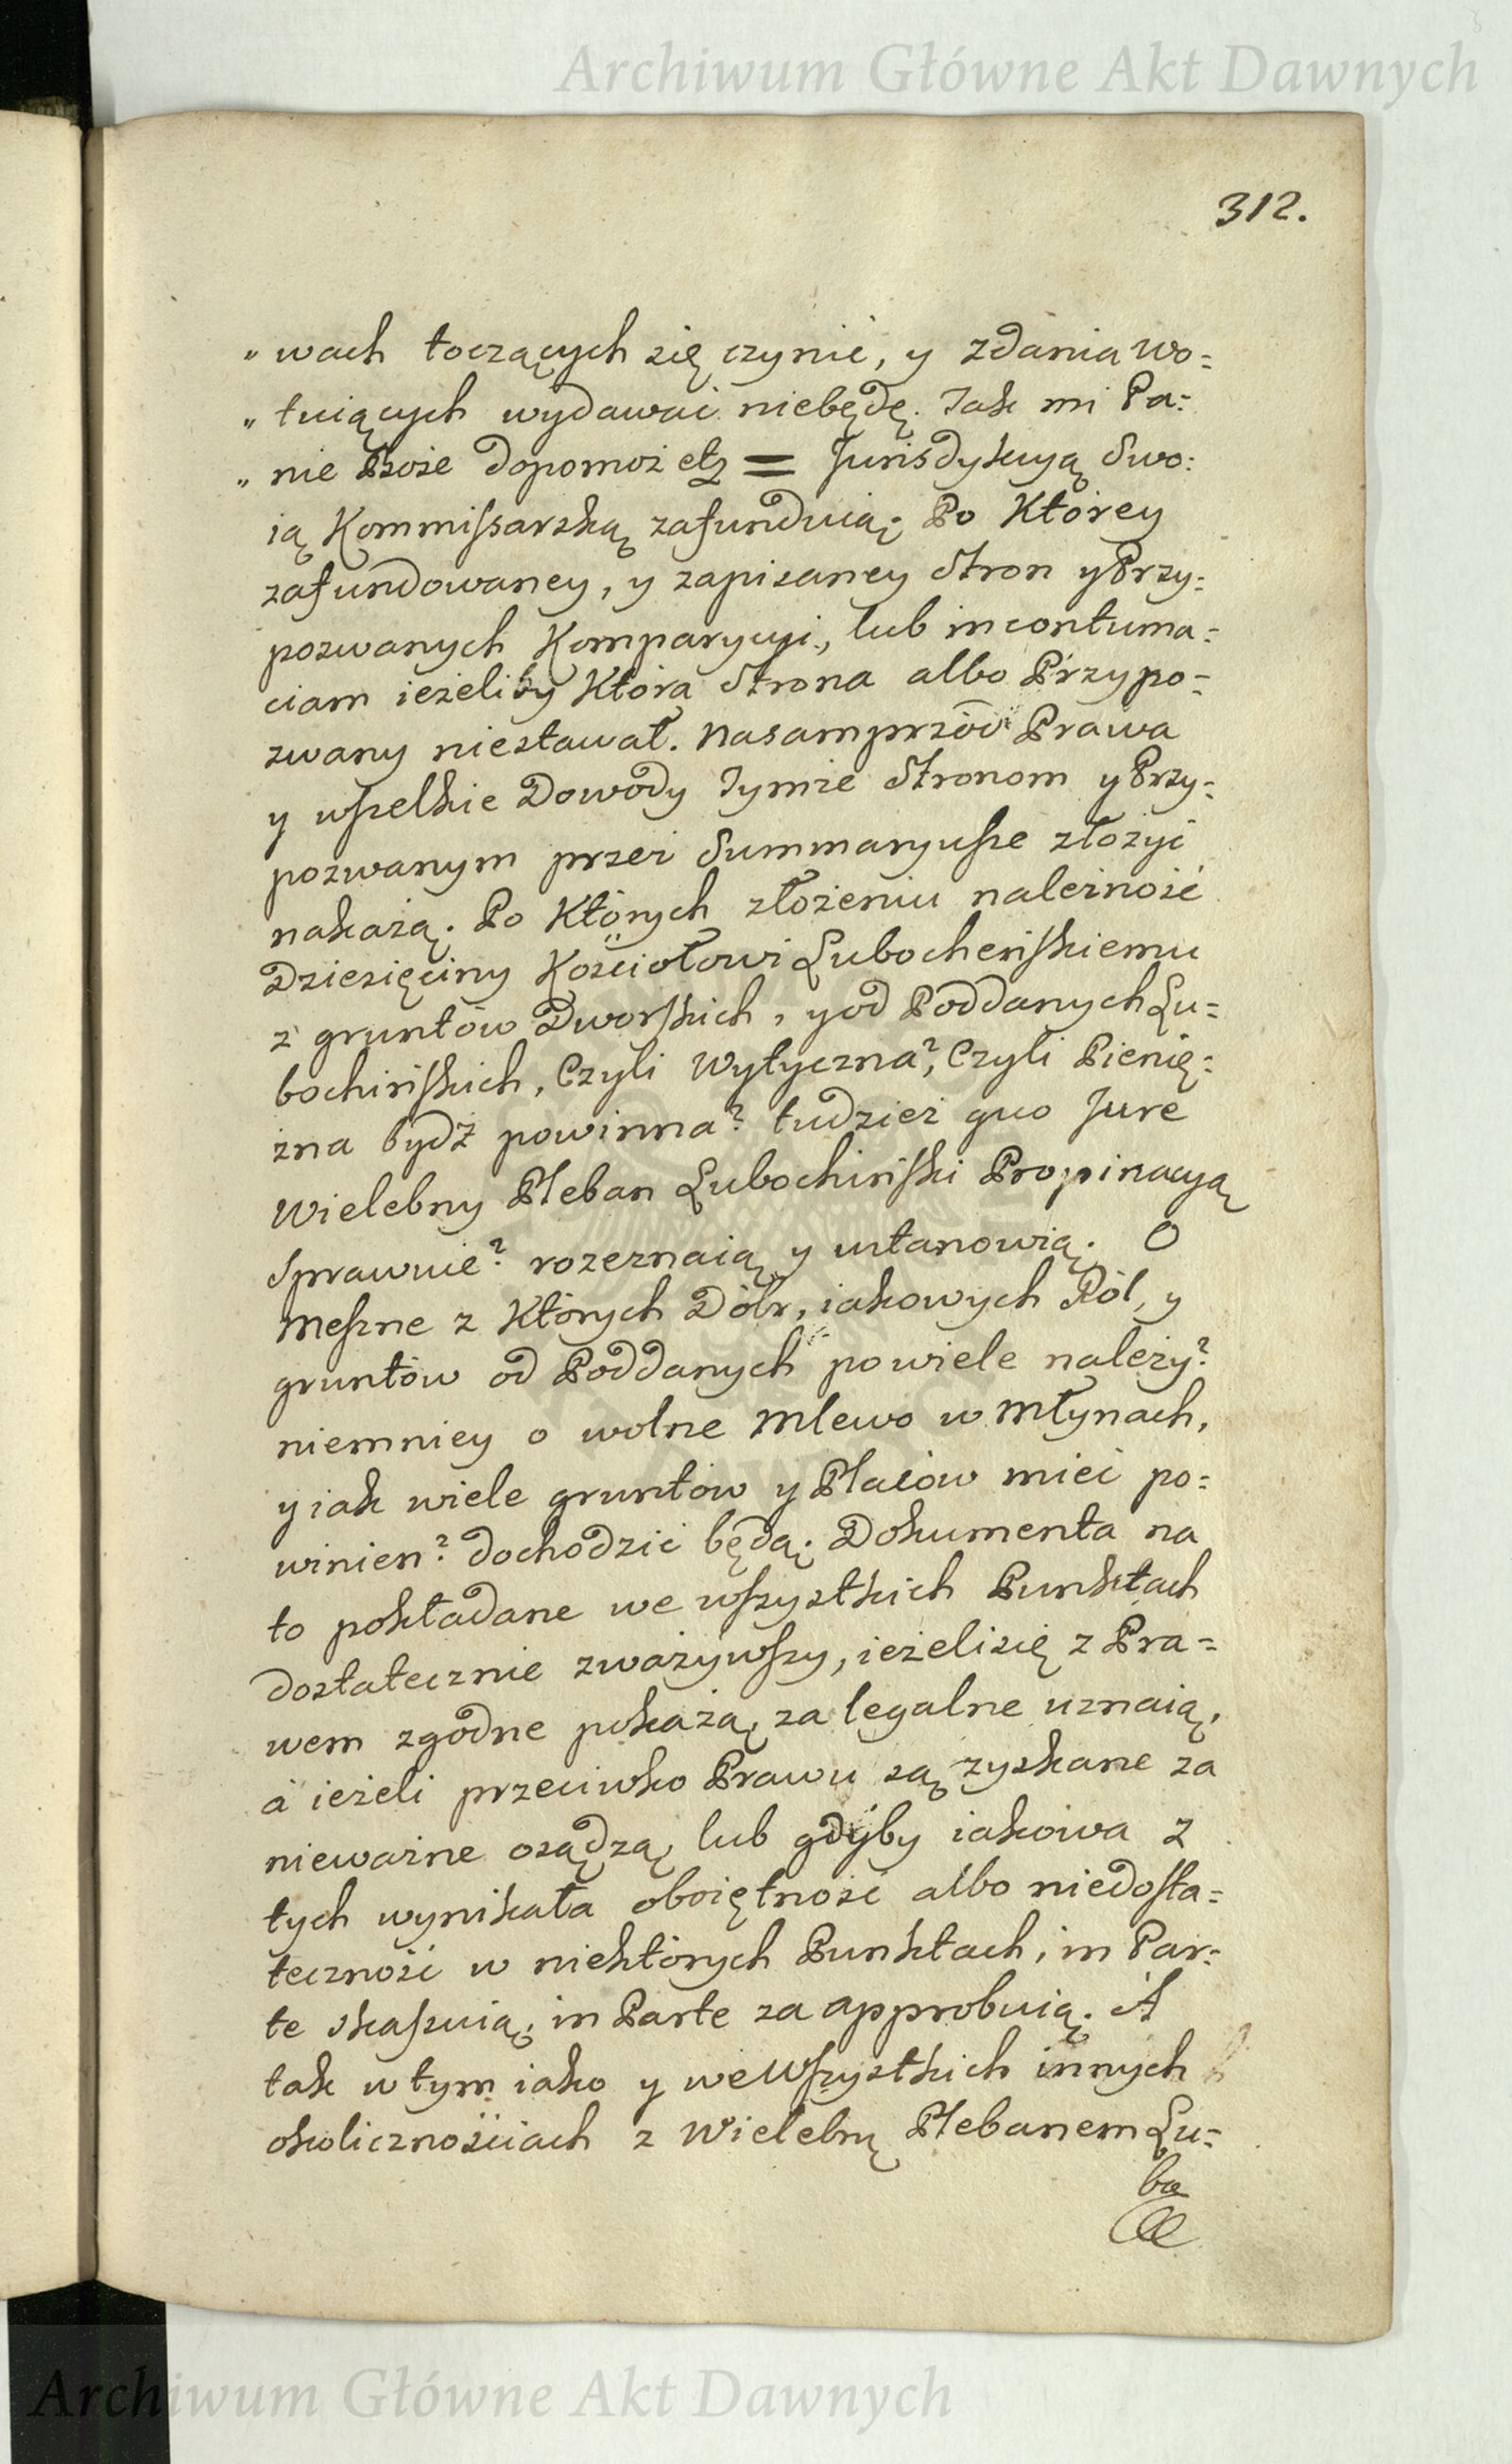 Archiwum Główne Akt Dawnych
312.
„ wach toczących się czynić, y zdania wo=
„ tuiących wydawać niebędę. Jak mi Pa=
„ nie Boże dopomoż etz = Jurisdykcyą Swo=
ią Kommissarską zafunduią; Po Którey
zafundowaney, y zapisaney Stron y Przy=
pozwanych Komparycyi, lub in contuma=
ciam ieżeliby Która Strona albo Przypo=
zwany niestawał. Nasamprzód Prawa
y wszelkie Dowody Tymże Stronom y Przy=
pozwanym przez Summaryusze złożyć
nakażą. Po Których złożeniu należność
Dziesięciny Kościołowi Lubocheńskiemu
z gruntów Dworskich, y od Poddanych Lu=
bochińskich, Czyli Wytyczna?, Czyli Pienię=
żna bydź powinna? tudzież quo Jure
Wielebny Pleban Lubochiński Propinacyą
Sprawuie? rozeznaią y ustanowią. O
Meszne z Których Dóbr, iakowych Ról, y
gruntów od Poddanych powiele należy?
niemniey o wolne Mlewo w Młynach,
y iak wiele gruntów y Placów mieć po=
winien? dochodzić będą; Dokumenta na
to pokładane we wszystkich Punktach
dostatecznie zważywszy, ieżeli się z Pra=
wem zgodne pokażą, za legalne uznaią,
à ieżeli przeciwko Prawu są zyskane za
nieważne osądzą, lub gdyby iakowa z
tych wynikała oboiętność albo niedosta=
teczność w niektórych Punktach, in Par=
te skassuią, in Parte za approbuią. A
tak w tym iako y we Wszystkich innych
okolicznościach z Wielebnym Plebanem Lu=
bo
Archiwum Główne Akt Dawnych